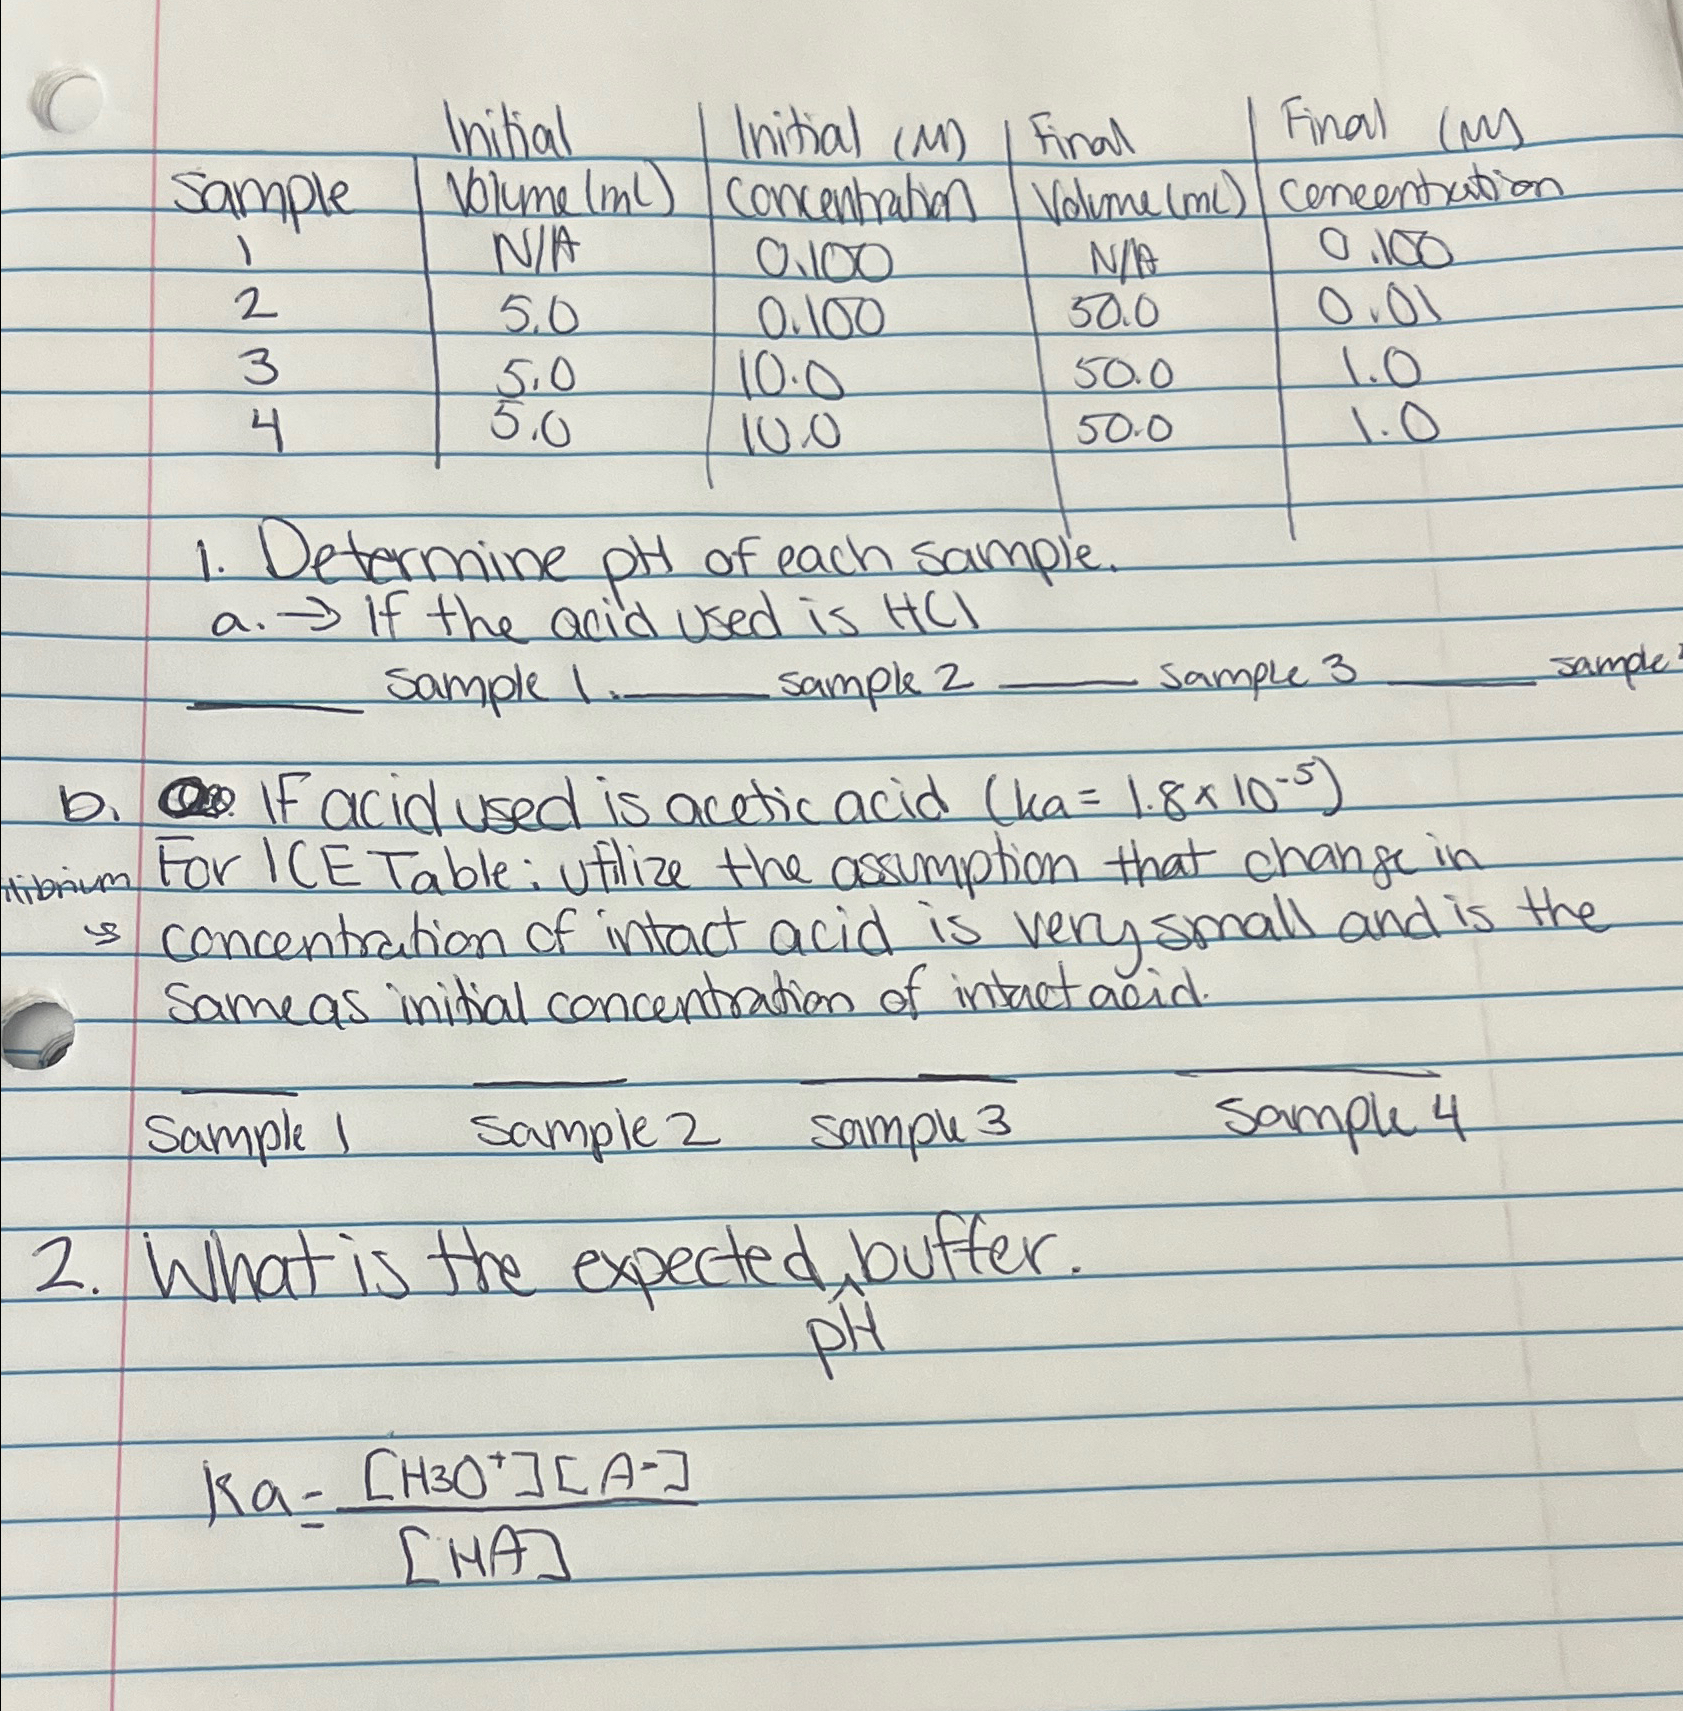 Initial Initial (M) Final Final (M)
Sample Volume (mL) Concentration Volume (mL) Concentration
1 N/A 0.100 N/A 0.100
2 5.0 0.100 50.0 0.01
3 5.0 10.0 50.0 1.0
4 5.0 10.0 50.0 1.0
1. Determine pH of each sample.
a. → If the acid used is HCl
____ Sample 1. ____ sample 2 ____ sample 3 ____ sample
b. If acid used is acetic acid (ka = 1.8 x 10⁻⁵)
For ICE Table: utilize the assumption that change in
concentration of intact acid is very small and is the
same as initial concentration of intact acid.
Sample 1 Sample 2 Sample 3 Sample 4
2. What is the expected pH buffer.
Ka = [H3O⁺][A⁻]
[HA]